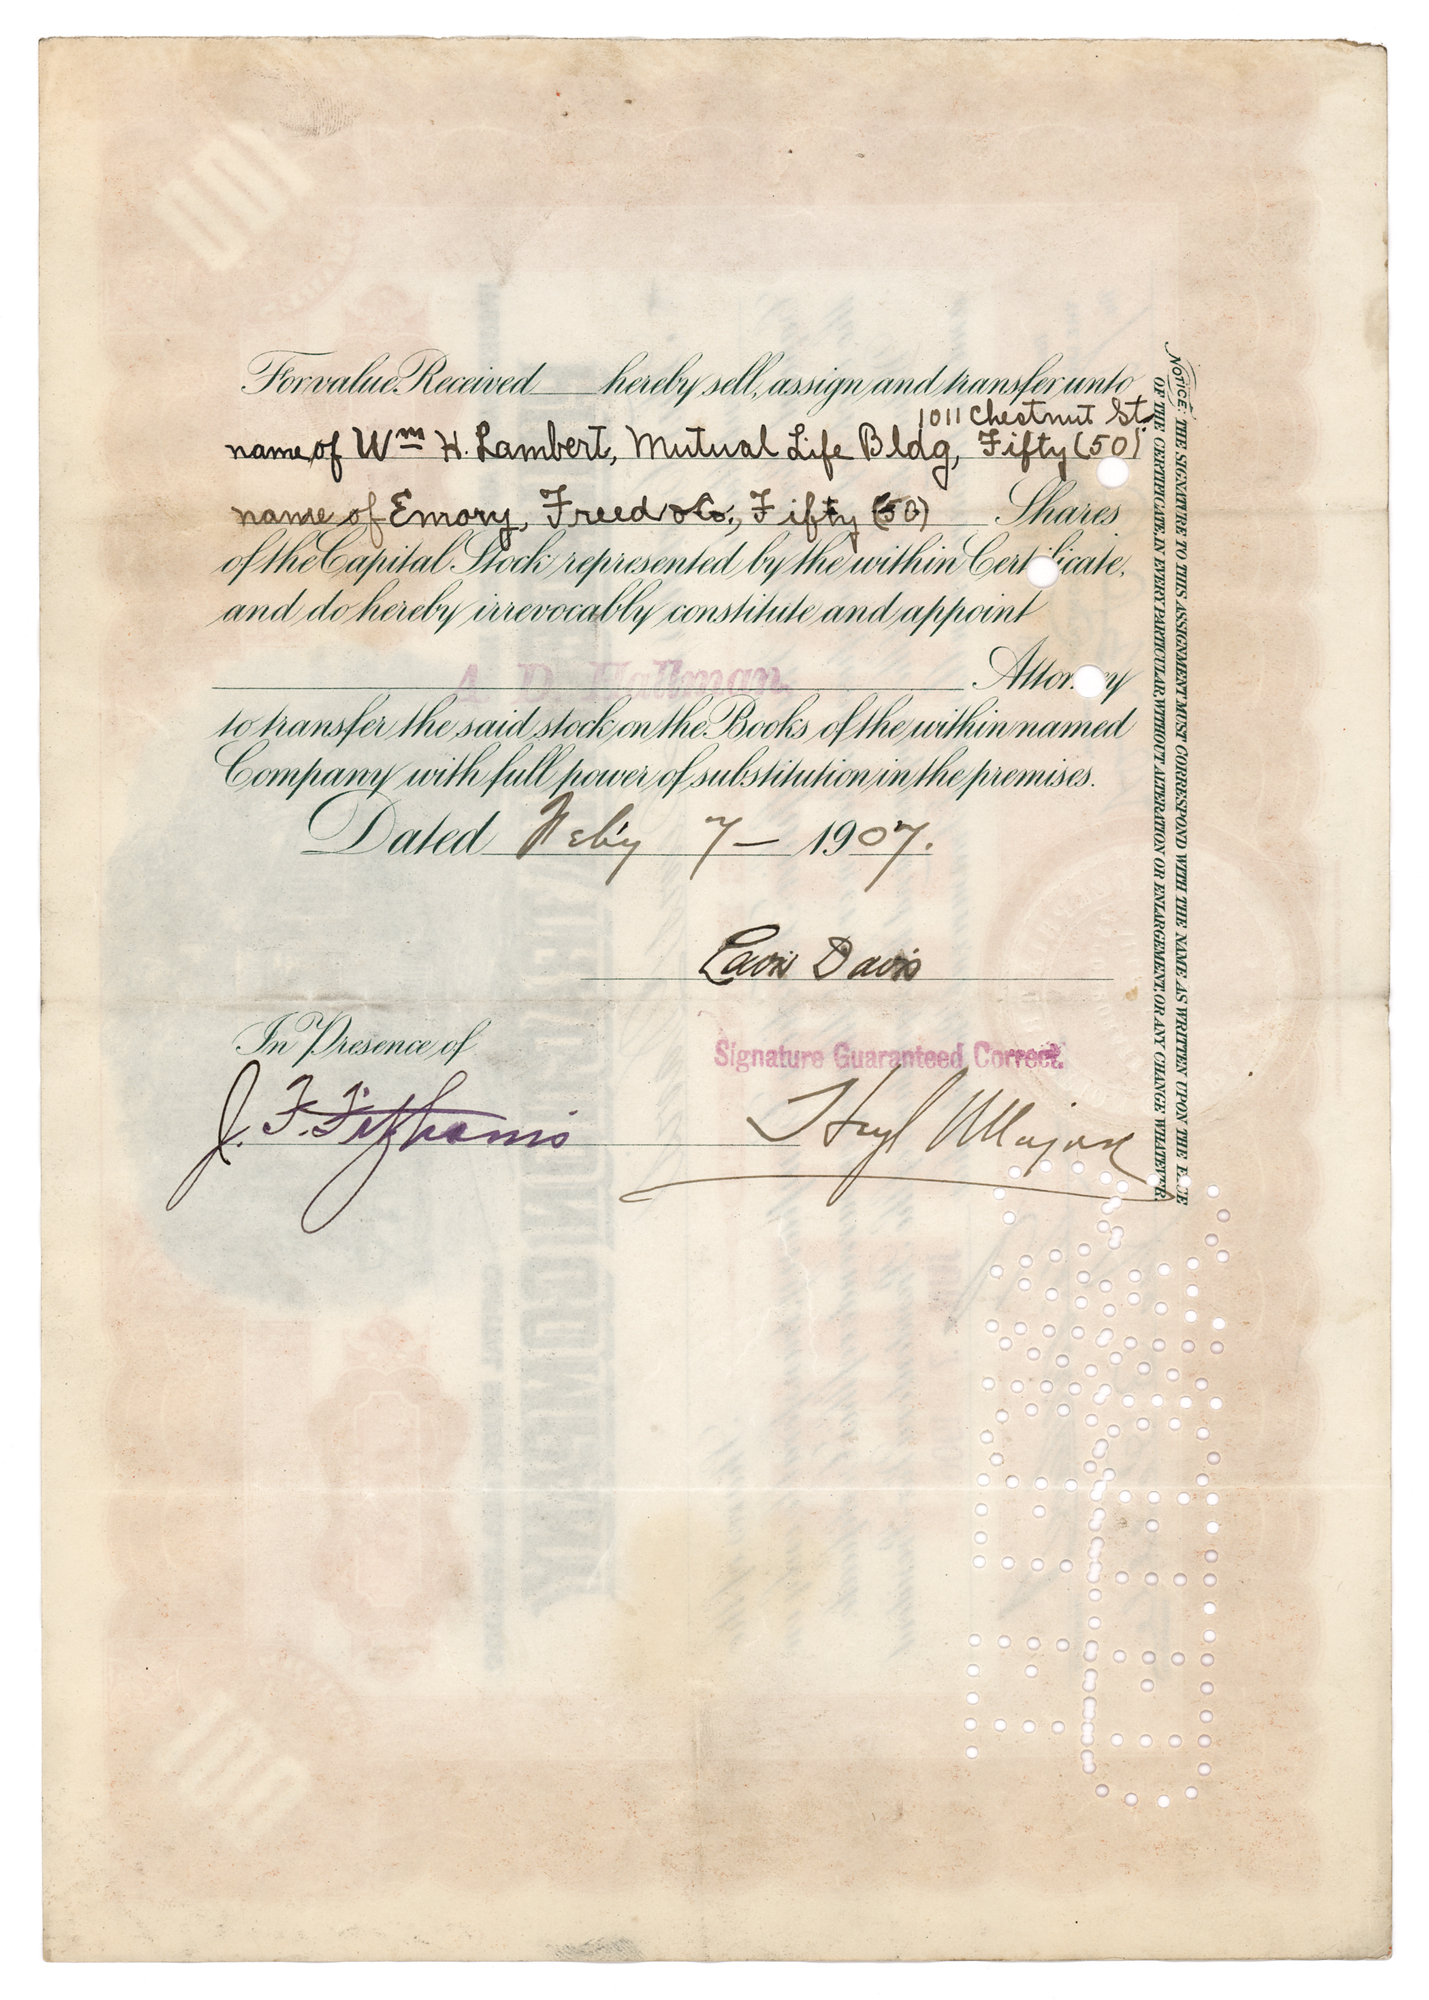 For value Received hereby sell, assign and transfer unto
1011 Chestnut St.
name of Wm H. Lambert, Mutual Life Bldg, Fifty (50)
name of Emory, Freed & Co., Fifty (50) Shares
of the Capital Stock represented by the within Certificate,
and do hereby irrevocably constitute and appoint
A. D. Hallman. Attorney
to transfer the said stock on the Books of the within named
Company with full power of substitution in the premises.
Dated Feby 7 - 1907.
Davis
In Presence of
Signature Guaranteed Correct.
J. F.
NOTICE: THE SIGNATURE TO THIS ASSIGNMENT MUST CORRESPOND WITH THE NAME AS WRITTEN UPON THE FACE
OF THE CERTIFICATE, IN EVERY PARTICULAR, WITHOUT ALTERATION OR ENLARGEMENT, OR ANY CHANGE WHATEVER.
100
100